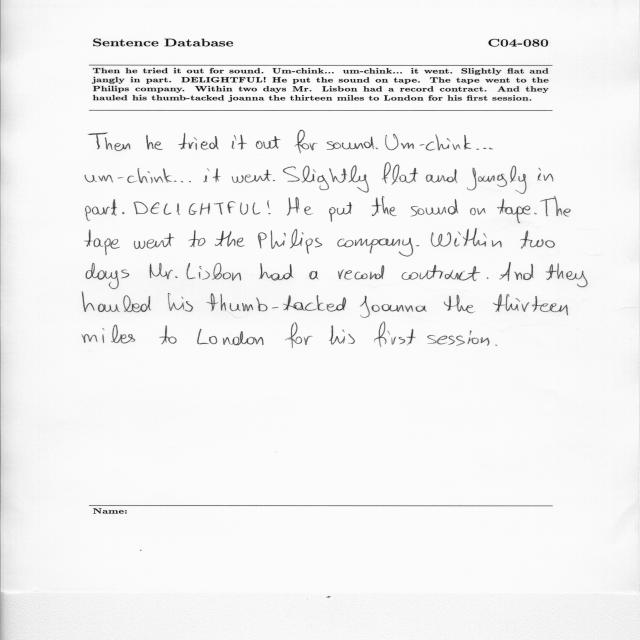 Sentence Database C04-080
Then he tried it out for sound. Um-chink... um-chink... it went. Slightly flat and
jangly in part. DELIGHTFUL! He put the sound on tape. The tape went to the
Philips company. Within two days Mr. Lisbon had a record contract. And they
hauled his thumb-tacked joanna the thirteen miles to London for his first session.
Then he tried it out for sound. Um-chink...
um-chink... it went. Slightly flat and jangly in
part. DELIGHTFUL! He put the sound on tape. The
tape went to the Philips company. Within two
days Mr. Lisbon had a record contract. And they
hauled his thumb-tacked Joanna the thirteen
miles to London for his first session.
Name: